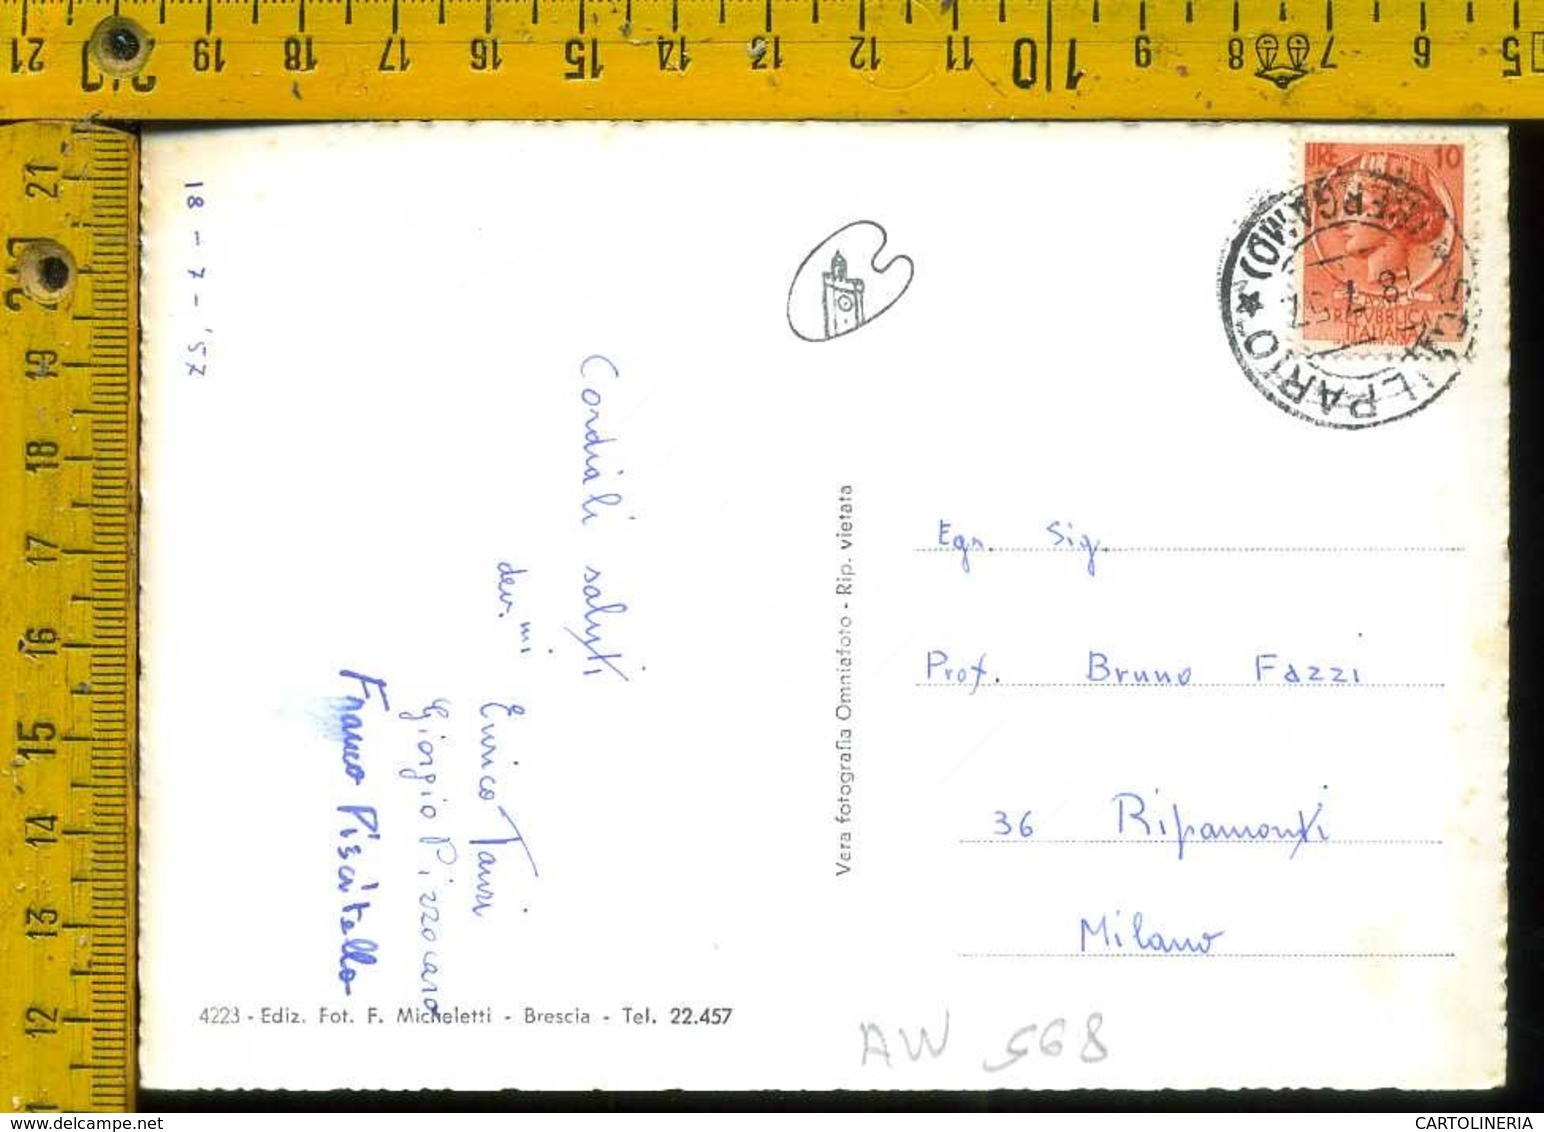 21 19 18 17 16 15 14 13 12 11 10 9 8 7 6 5
21
19
18
17
16
15
14
13
12
18 - 7 - '57
Cordiali saluti
dev.mi
Enrico Tauri
Giorgio Pizzocaro
Franco Piscitello
4223 - Ediz. Fot. F. Micheletti - Brescia - Tel. 22.457
Vera fotografia Omniafoto - Rip. vietata
LIRE 10
REPVBBLICA
ITALIANA
(BERGAMO)
18 7 57
Egr. Sig.
Prof. Bruno Fazzi
36 Ripamonti
Milano
AW 568
CARTOLINERIA
delcampe.net